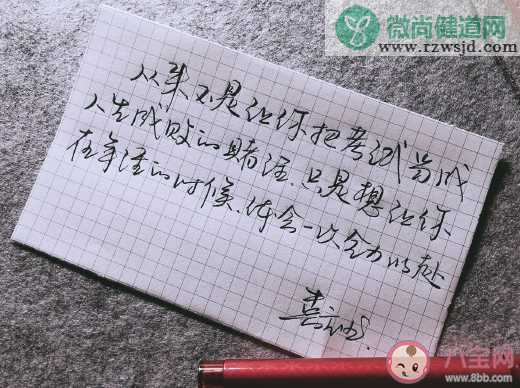 微尚健道网
www.rzwsjd.com
从来不是让你把考试当成
人生成败的赌注.只是想让你
在年轻的时候.体会一次全力以赴
八宝网
www.8bb.com